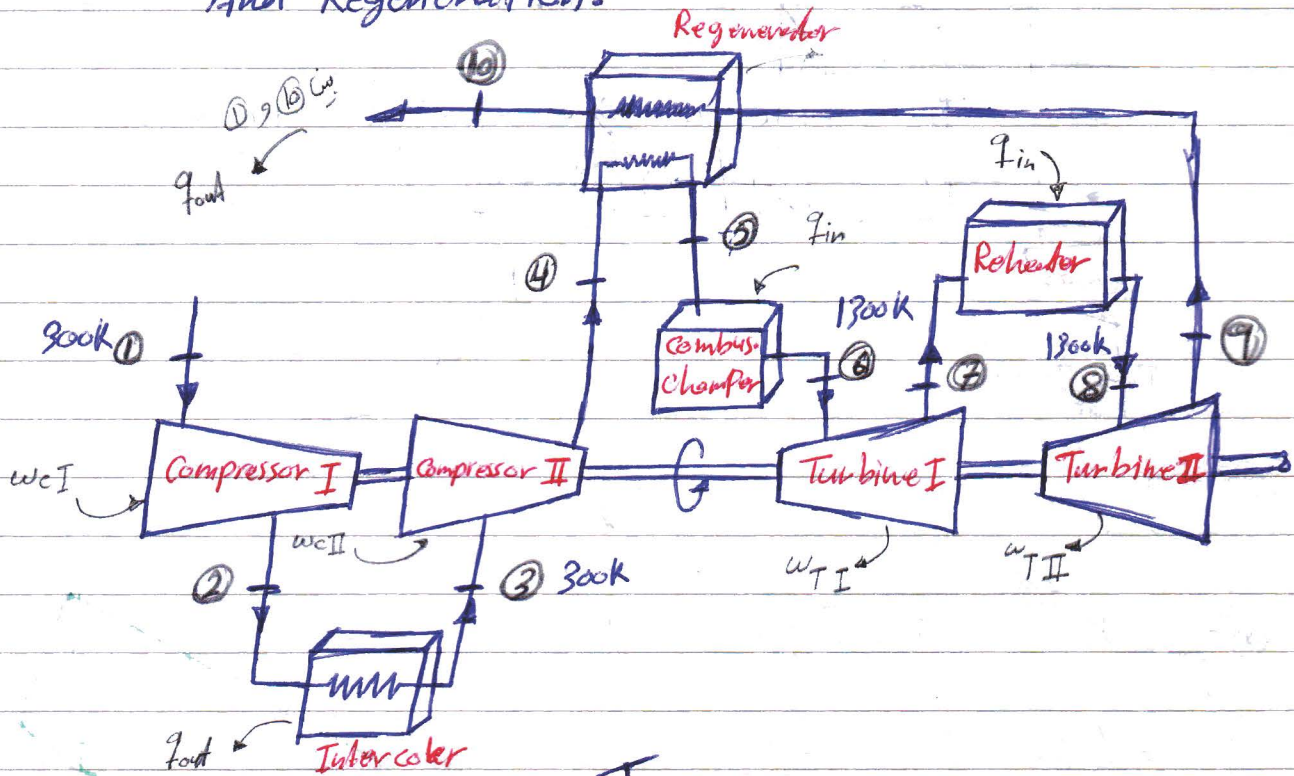 And Regeneration.
Regenerator
⑩
بين ⑩ و ①
q out
q in
⑤
q in
Reheater
④
1300K
300K ①
Combus.
Champer
⑥
1300K
⑦
⑧
⑨
Compressor I
Compressor II
Turbine I
Turbine II
wc I
wc II
w T I
w T II
②
③ 300K
q out
Intercoler